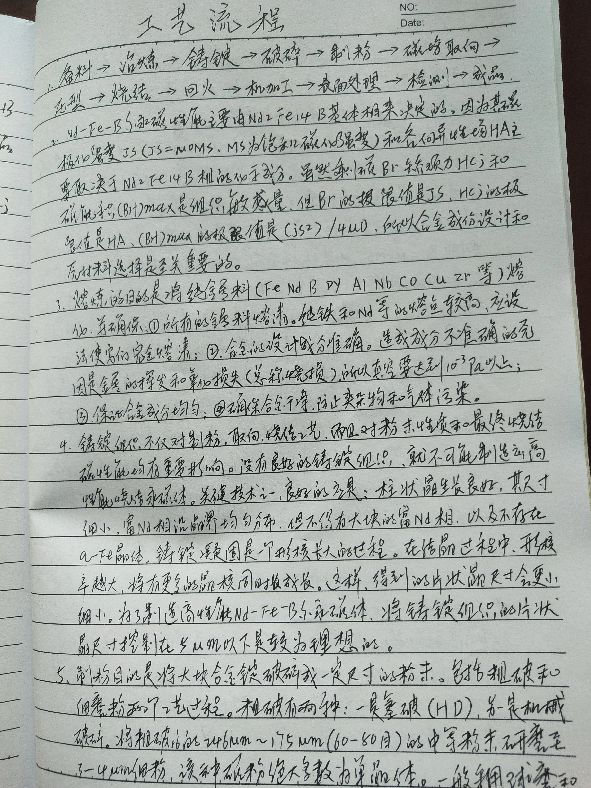 NO:
Date:
工艺流程
1. 备料→冶炼→铸锭→破碎→制粉→磁场取向→
成型→烧结→回火→机加工→表面处理→检测→成品.
2. Nd-Fe-B系永磁性能主要由Nd2Fe14B基体相来决定的。因为其磁
极化强度JS(JS=μ0MS, MS为饱和磁化强度)和各向异性场HA主
要取决于Nd2Fe14B相的化学成分。虽然剩磁Br 矫顽力HCj和
磁能积(BH)max是组织敏感量, 但Br的极限值是JS, HCj的极
限值是HA, (BH)max的极限值是(JS2)/4μ0, 所以合金成份设计和
原材料选择是至关重要的。
3. 熔炼的目的是:将纯金属料(Fe Nd B Dy Al Nb Co Cu Zr 等)熔
化,并确保①所有的金属料熔清。纯铁和Nb等的熔点较高, 应设
法使它们完全熔清; ②.合金的设计成分准确。造成成分不准确的原
因是金属的挥发和氧化损失(总称烧损), 所以真空要达到10⁻²Pa以上;
③.保证合金成分均匀; ④确保合金干净, 防止夹杂物和气体污染。
4. 铸锭组织不仅对制粉,取向,烧结工艺, 而且对粉末性质和最终烧结
磁性能均有重要影响。没有良好的铸锭组织, 就不可能制造出高
性能烧结永磁体。关键技术之一, 良好的应是: 柱状晶生长良好, 其尺寸
细小, 富Nd相沿晶界均匀分布, 但不得有大块的富Nd相, 以及不存在
α-Fe晶体, 铸锭凝固是个形核长大的过程。在结晶过程中, 形核
率越大, 将有更多的晶核同时成长。这样, 得到的片状晶尺寸会更小
细小。为了制造高性能Nd-Fe-B系永磁体, 将铸锭组织的片状
晶尺寸控制在5μm以下是较为理想的。
5. 制粉目的是将大块合金锭破碎成一定尺寸的粉末。包括粗破和
细磨粉两个工艺过程。粗破有两种: 一是氢破(HD), 另一是机械
破碎。将粗破后的246μm~175μm(60-80目)的中等粉末研磨至
3-4μm细粉, 该种磁粉绝大多数为单晶体。一般采用球磨和